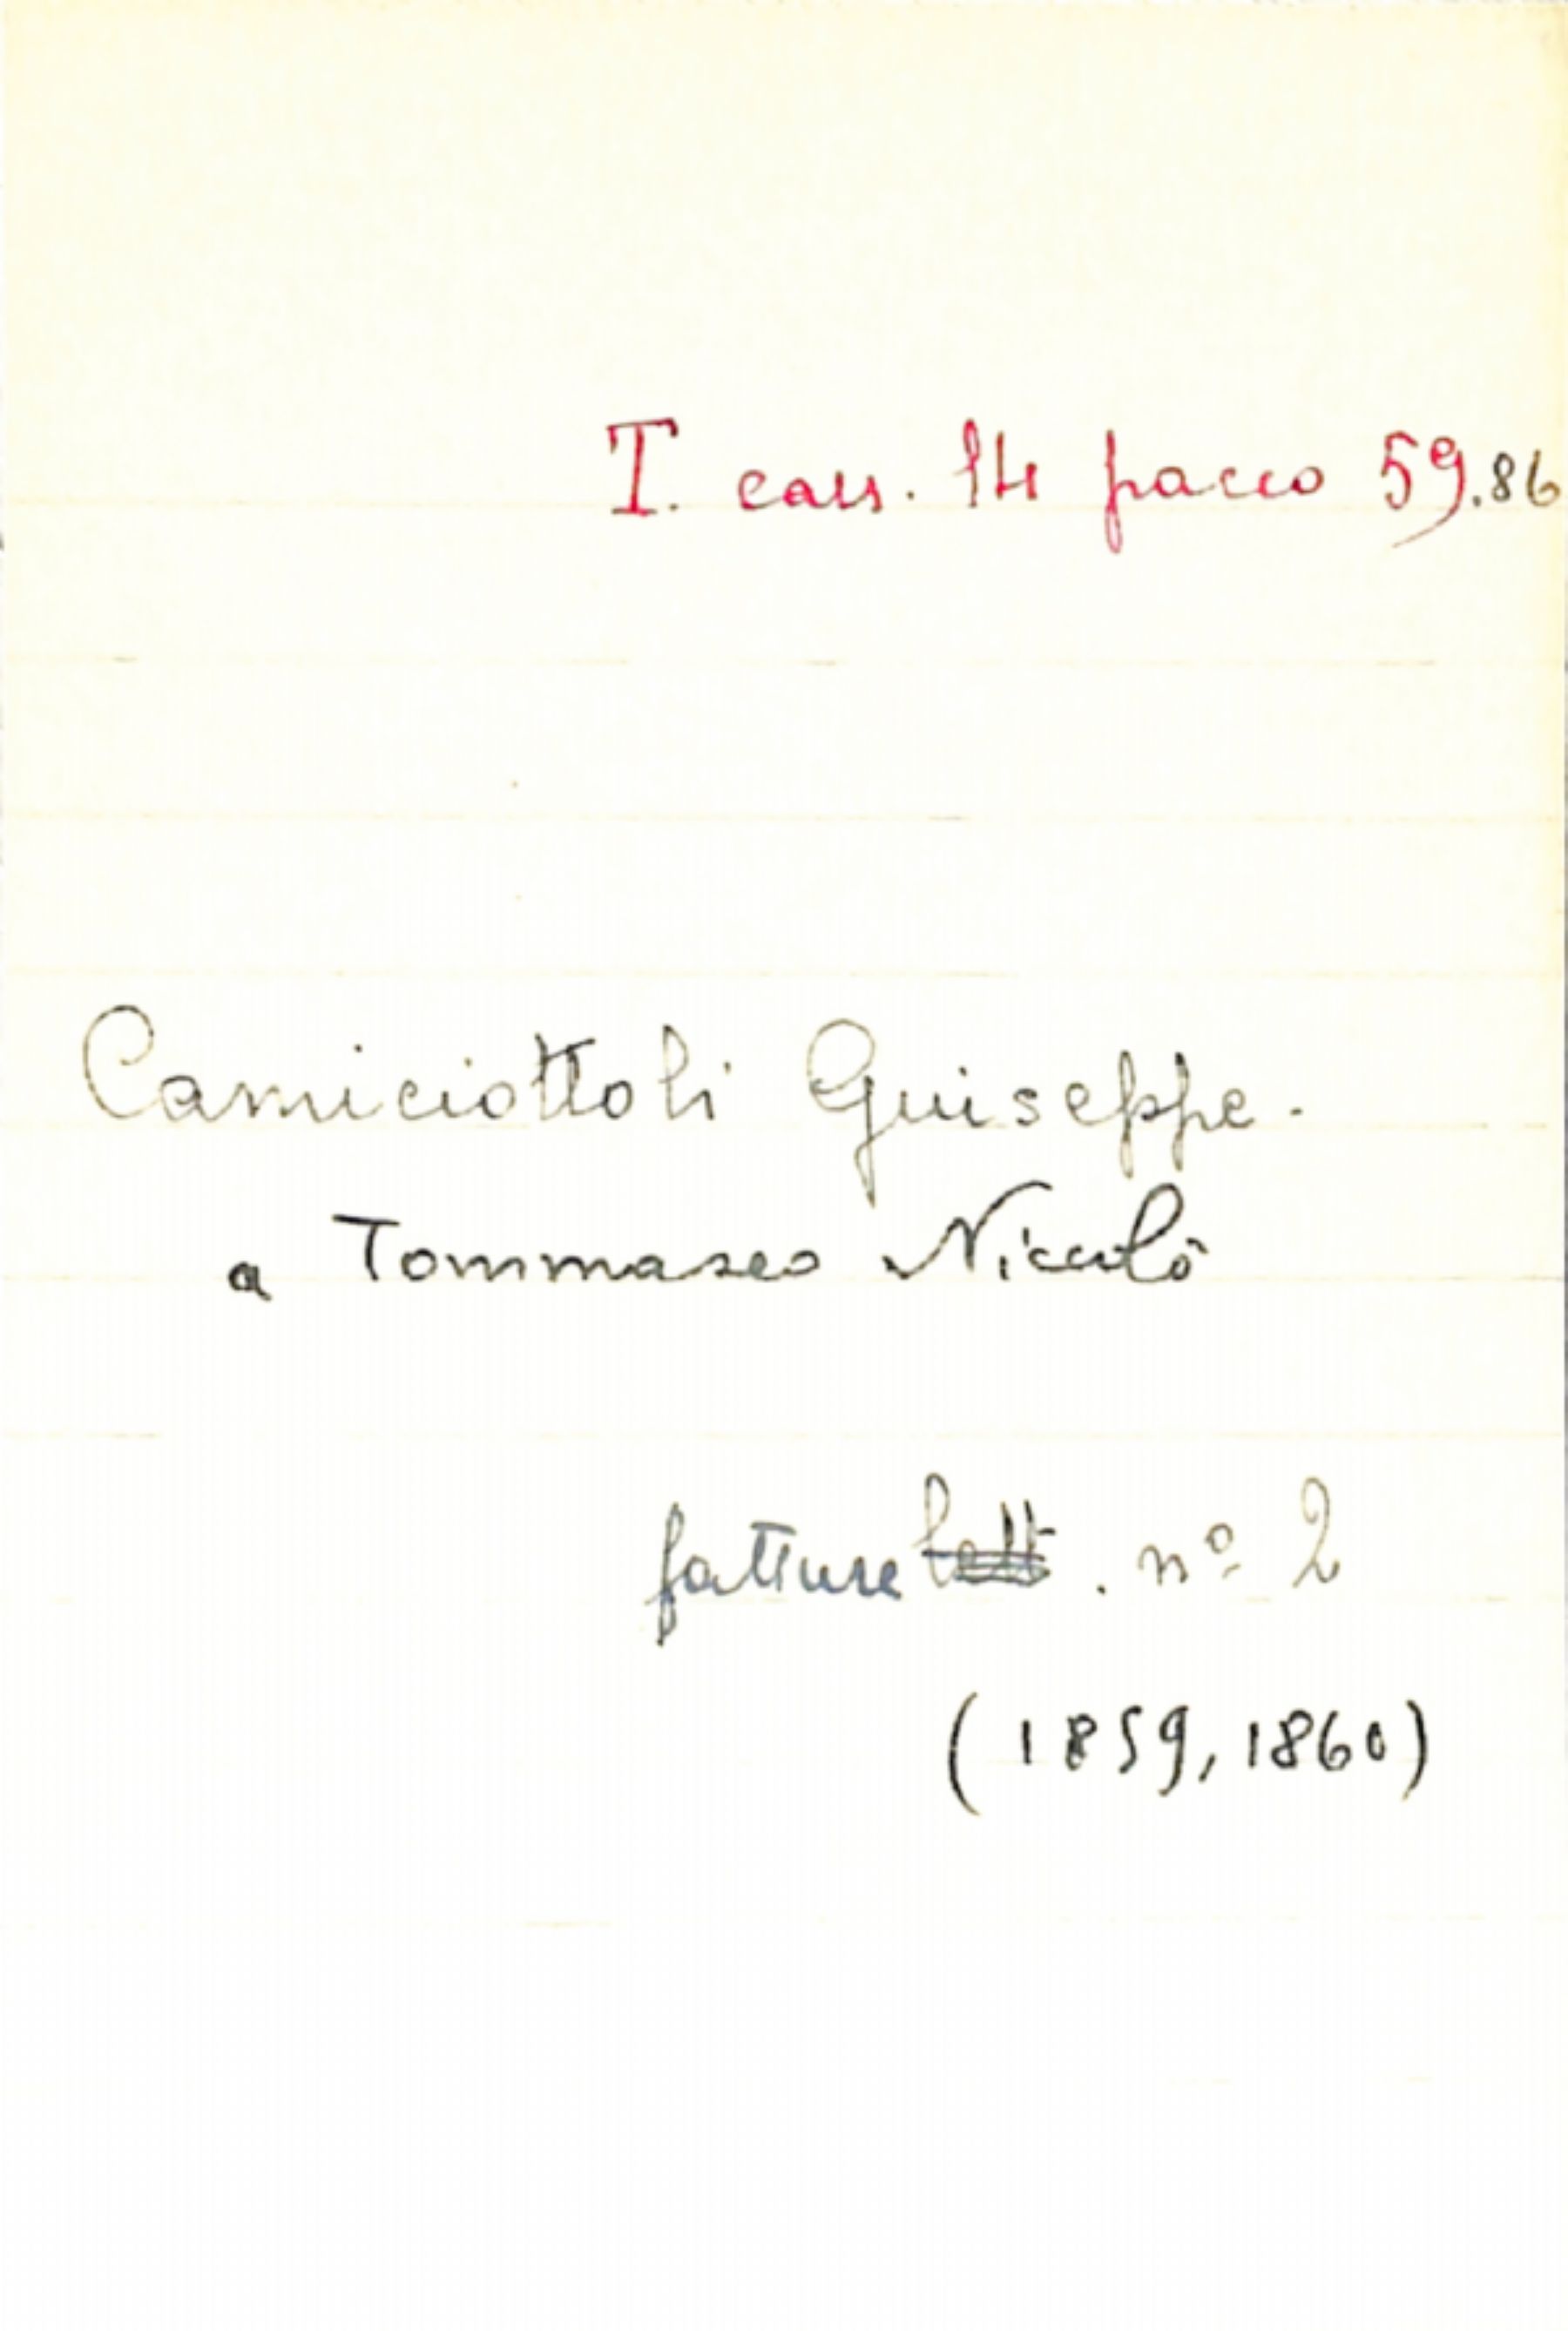 T. cass. 14 pacco 59.86
Camiciottoli Giuseppe.
a Tommaseo Niccolò
fatture lett. nº 2
(1859, 1860)